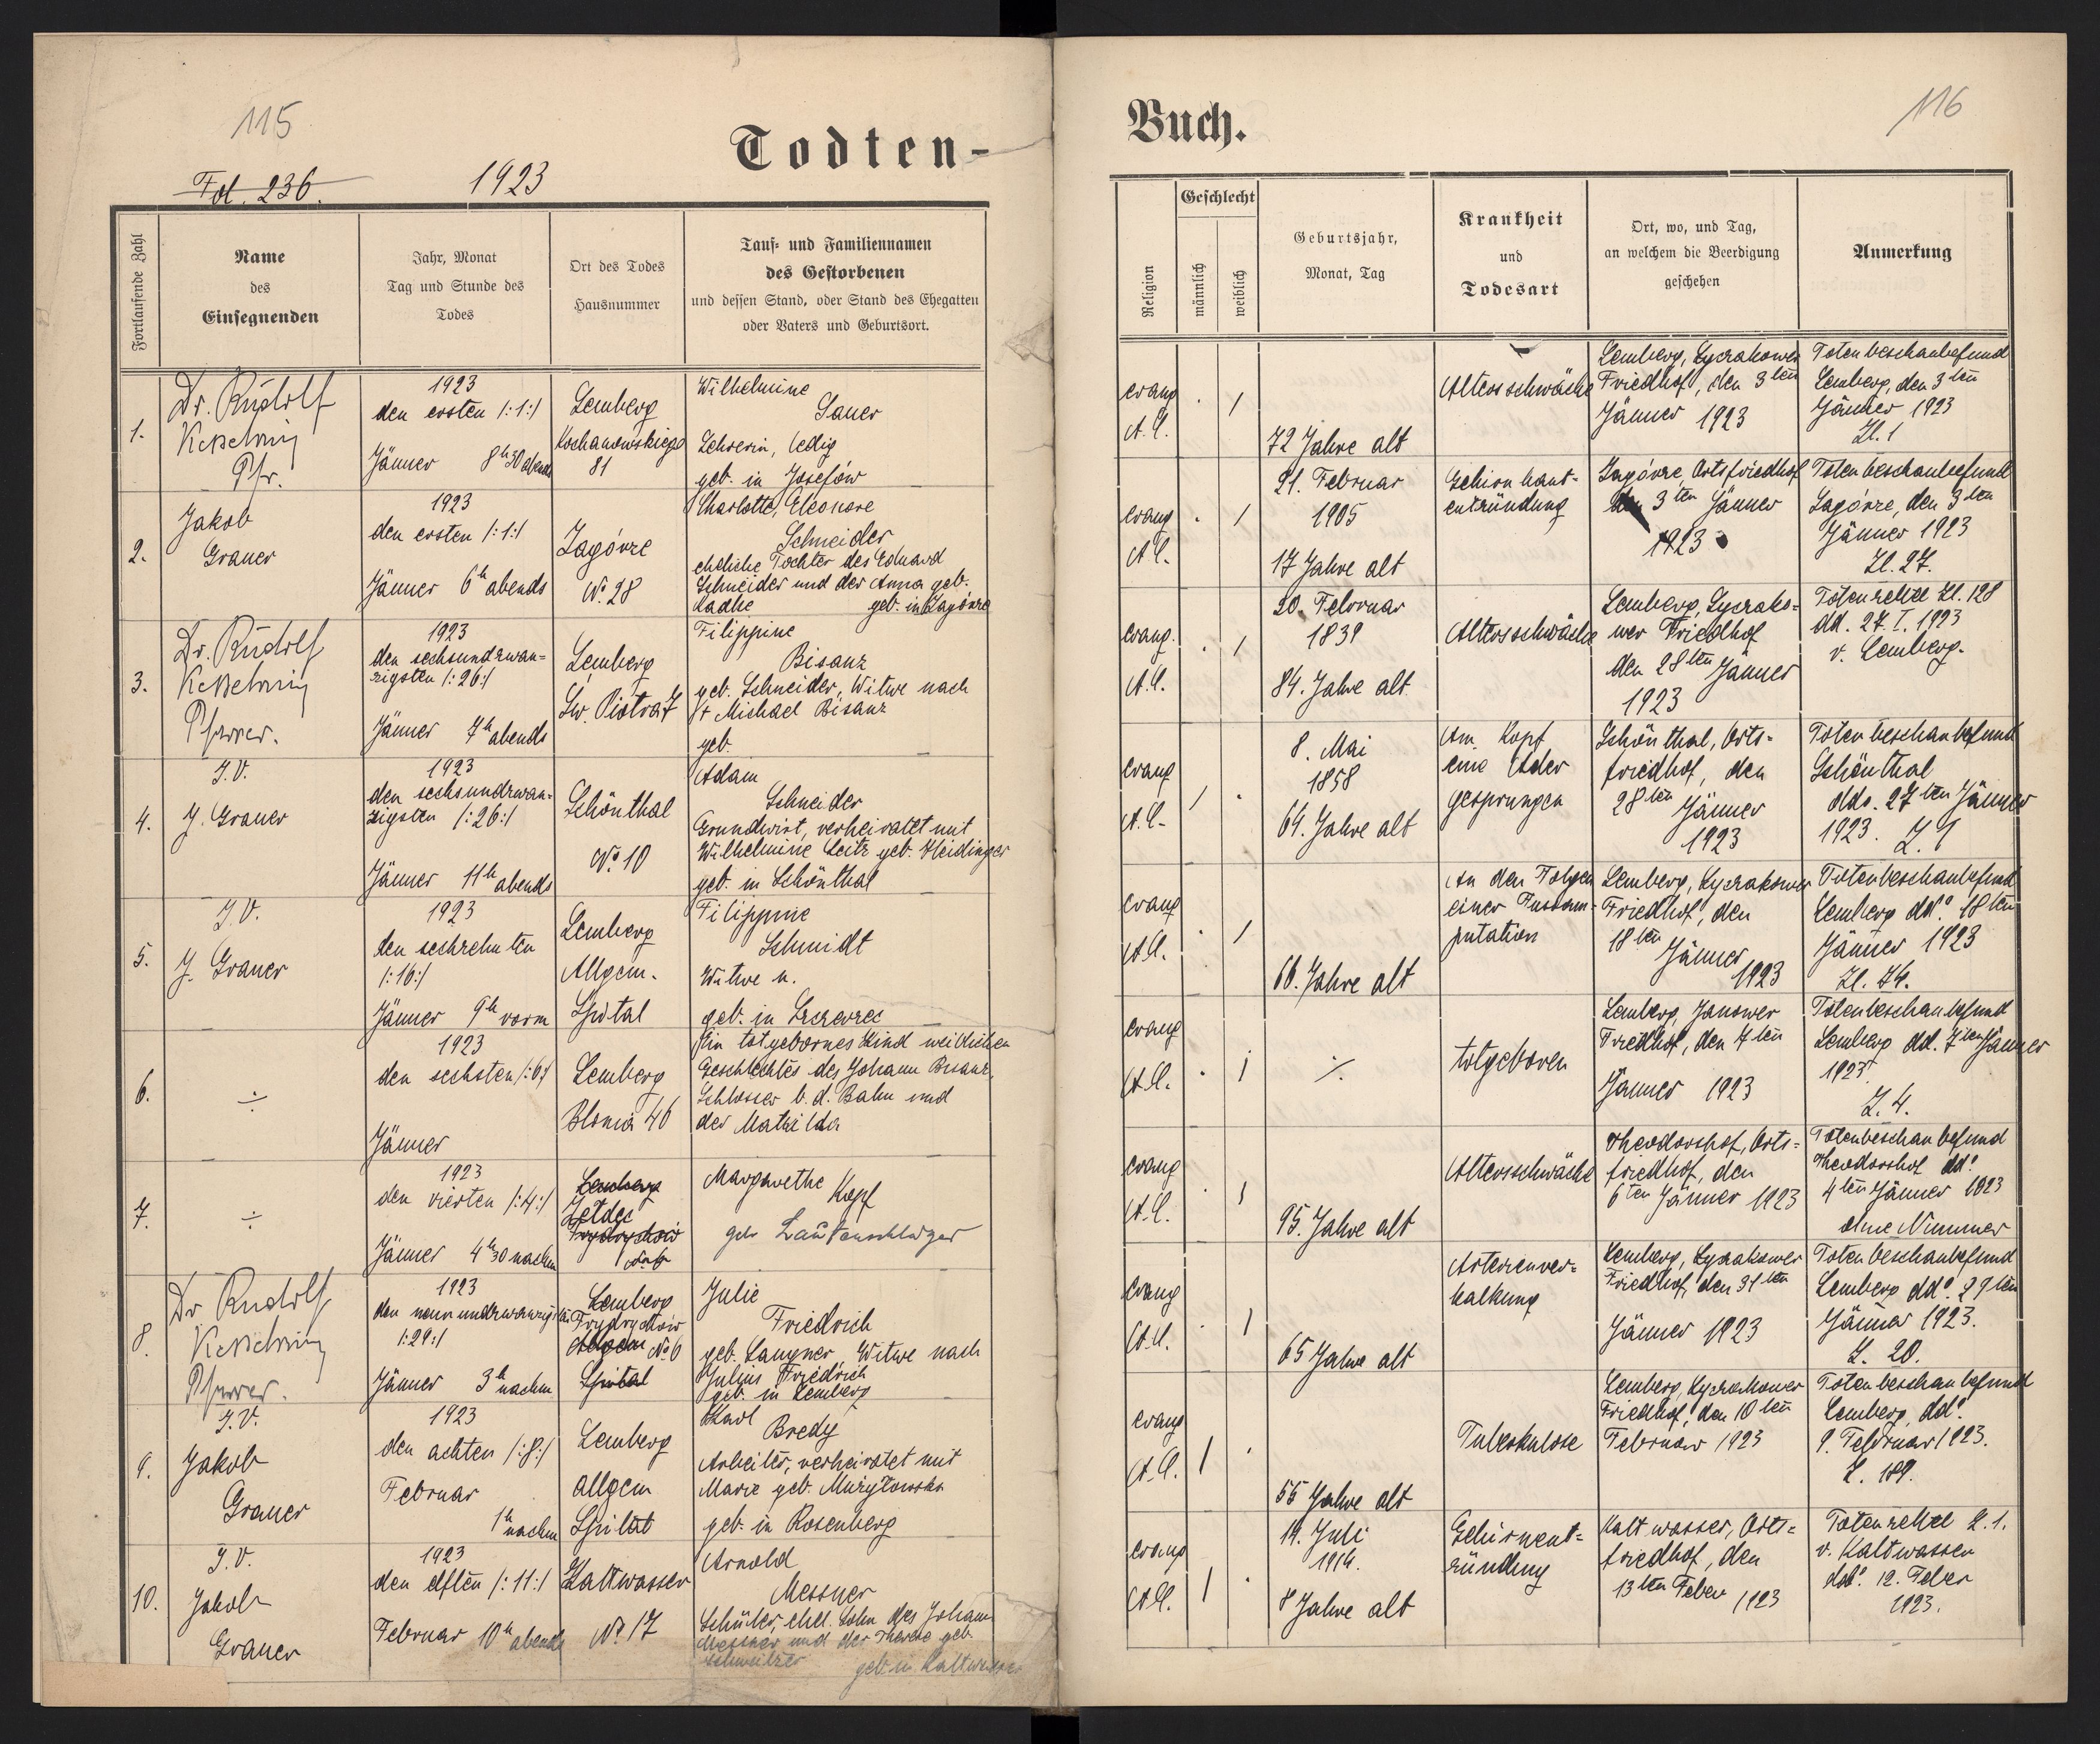 115
Fol. 236.
1923
Todten-
Fortlaufende Zahl
Name
des
Einsegnenden
Jahr, Monat
Tag und Stunde des
Todes
Ort des Todes
Hausnummer
Tauf- und Familiennamen
des Gestorbenen
und dessen Stand, oder Stand des Ehegatten
oder Vaters und Geburtsort.
1.
Dr. Rudolf
Kesselring
Pfr.
1923
den ersten /:1:/
Jänner 8h30 abends
Lemberg
Kochanowskiego
81
Wilhelmine
Sauer
Lehrerin, ledig
geb. in Josefów
2.
Jakob
Grauer
1923
den ersten /:1:/
Jänner 6h abends
Zagórze
No. 28
Charlotte, Eleonore
Schneider
eheliche Tochter des Eduard
Schneider und der Anna geb.
Kadhe geb. in Zagórze
3.
Dr. Rudolf
Kesselring
Pfarrer.
1923
den sechsundzwan-
zigsten /:26:/
Jänner 7h abends
Lemberg
Św. Piotra 7
Filippine
Bisanz
geb. Schneider, Witwe nach
+ Michael Bisanz
geb.
4.
I.V.
J. Grauer
1923
den sechsundzwan-
zigsten /:26:/
Jänner 11h abends
Schönthal
No. 10
Adam
Schneider
Grundwirt, verheiratet mit
Wilhelmine Seitz geb. Heidinger
geb. in Schönthal
5.
I.V.
J. Grauer
1923
den sechzehnten
/:16:/
Jänner 9h vorm
Lemberg
Allgem.
Spital
Filippine
Schmidt
Witwe n.
geb. in
6.
÷
1923
den sechsten /:6:/
Jänner
Lemberg
Blonia 46
Ein totgebornes Kind weiblichen
Geschlechtes des Johann Bisanz,
Schlosser b. d. Bahn und
der Mathilda
7.
÷
1923
den vierten /:4:/
Jänner 4h30 nachm
Lemberg
Frydrychów
No. 6
Margarethe
Kopf
geb Lautenschläger
8.
Dr Rudolf
Kesselring
Pfarrer.
1923
den neunundzwanzigsten
/:29:/
Jänner 3h nachm
Lemberg
Frydrychów
Allgem No 6
Spital
Julie
Friedrich
geb. Langner Witwe nach
Julius Friedrich
geb. in Lemberg
9.
I.V.
Jakob
Grauer
1923
den achten /:8:/
Februar
1h nachm
Lemberg
allgem
Spital
Karl
Bredy
Arbeiter, verheiratet mit
Marie geb.
geb. in Rosenberg
10.
I.V.
Jakob
Grauer
1923
den elften /:11:/
Februar 10h abends
Kaltwasser
No. 17
Arnold
Messner
Schüler, ehel. Sohn des Johann
Messner und der Therese geb.
Schweitzer geb. in Kaltwasser
Buch.
116
Religion
Geschlecht
männlich
weiblich
Geburtsjahr,
Monat, Tag
Krankheit
und
Todesart
Ort, wo, und Tag,
an welchem die Beerdigung
geschehen
Anmerkung
evang
A.C.
. /
72 Jahre alt
Altersschwäche
Lemberg, Lyczakower
Friedhof, den 3ten
Jänner 1923
Totenbeschaubefund
Lemberg, den 3ten
Jänner 1923
Zl. 1
evang
A.C.
. /
21. Februar
1905
17 Jahre alt
Gehirnhaut-
entzündung
Zagórze, Ortsfriedhof
den 3ten Jänner
1923
Totenbeschaubefund
Zagórze, den 3ten
Jänner 1923
Zl. 27.
evang.
A.C.
. /
20. Februar
1839
84. Jahre alt
Altersschwäche
Lemberg, Lyczako-
wer Friedhof
den 28ten Jänner
1923
Totenzettel Zl. 128
dd. 27. I. 1923
v. Lemberg.
evang
A.C.
/ .
8. Mai
1858
64. Jahre alt
Am Kopf
eine Ader
gesprungen
Schönthal, Orts-
friedhof, den
28ten Jänner
1923
Totenbeschaubefund
Schönthal
ddo. 27ten Jänner
1923. Z. 1
evang
A.C.
. /
66. Jahre alt
An den Folgen
einer Fussam-
putation
Lemberg, Lyczakower
Friedhof, den
18ten Jänner
1923
Totenbeschaubefund
Lemberg ddo. 18ten
Jänner 1923
Zl. 74.
evang
A.C.
. /
÷
totgeboren
Lemberg, Janower
Friedhof, den 7ten
Jänner 1923
Totenbeschaubefund
Lemberg dd. 7ten Jänner
1923
Z. 4.
evang
A.C.
. /
95. Jahre alt
Altersschwäche
Theodorshof, Orts-
friedhof, den
6ten Jänner 1923
Totenbeschaubefund
Theodorshof ddo.
4ten Jänner 1923
ohne Nummer
evang
A.C.
. /
65 Jahre alt
Arterienver-
kalkung
Lemberg, Lyczakower
Friedhof, den 31ten
Jänner 1923
Totenbeschaubefund
Lemberg ddo. 29ten
Jänner 1923.
Z. 20.
evang
A.C.
/ .
55 Jahre alt
Tuberkulose
Lemberg, Lyczakower
Friedhof, den 10ten
Februar 1923
Totenbeschaubefund
Lemberg, ddo.
9. Februar 1923.
Z. 189.
evang
A.C.
/ .
14. Juli
1914.
8 Jahre alt
Gehirnent-
zündung
Kaltwasser, Orts-
friedhof, den
13ten Feber 1923
Totenzettel Z. 1.
v. Kaltwasser
ddo. 12. Feber
1923.